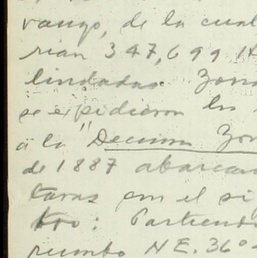 rango, de la cual
rian 347,699 H
lindadas. Zona
se expidieron los
a la "Decima Zon
de 1887 abarcan
tarás con el si
tro: Partiend
rumbo N E. 36°